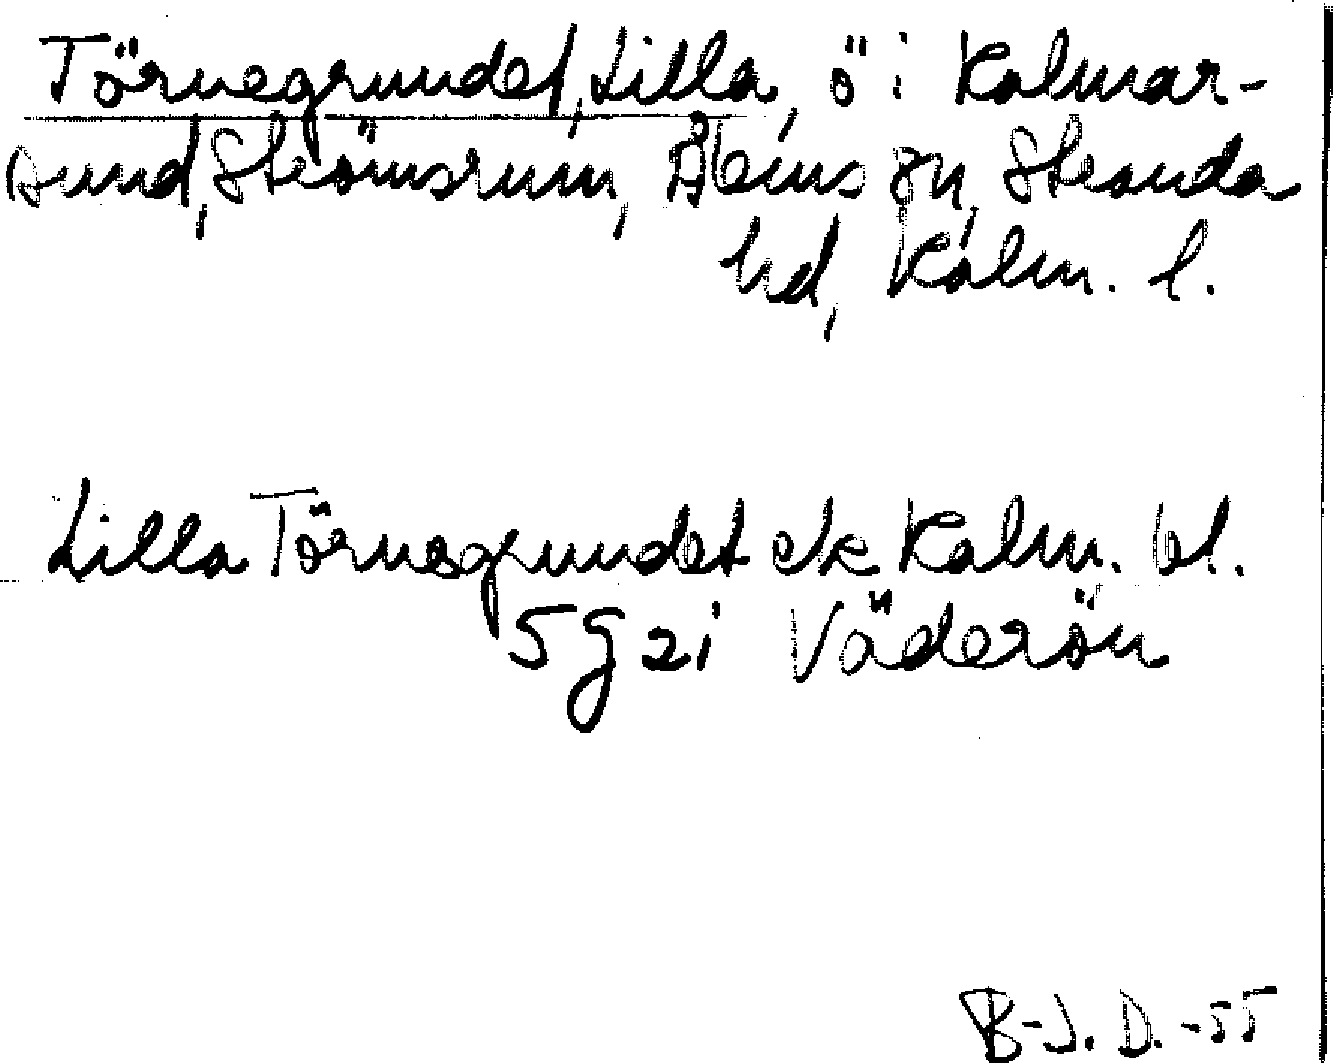 Törnegrundet, Lilla, ö i Kalmar-
sund, Strömsrum, Ålems sn, Stranda
hd, Kalm. l.
Lilla Törnegrundet ek Kalm. bl.
5 g 21 Väderön
B-J. D. -55